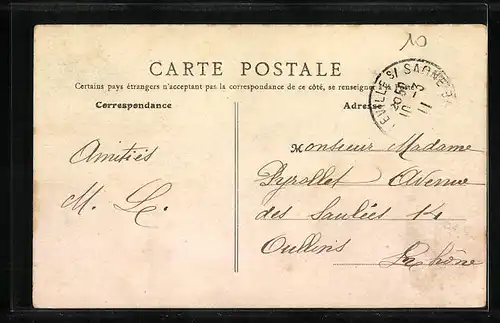 10
CARTE POSTALE
Certains pays étrangers n'acceptant pas la correspondance de ce côté, se renseigner à la Poste
Correspondance
Adresse
EVILLE S/ SAONE
20 50
10 - 3
11
Amitiés
M. L.
Monsieur Madame
Pyrollet Avenue
des Saulées 14
Oullins
Rhône